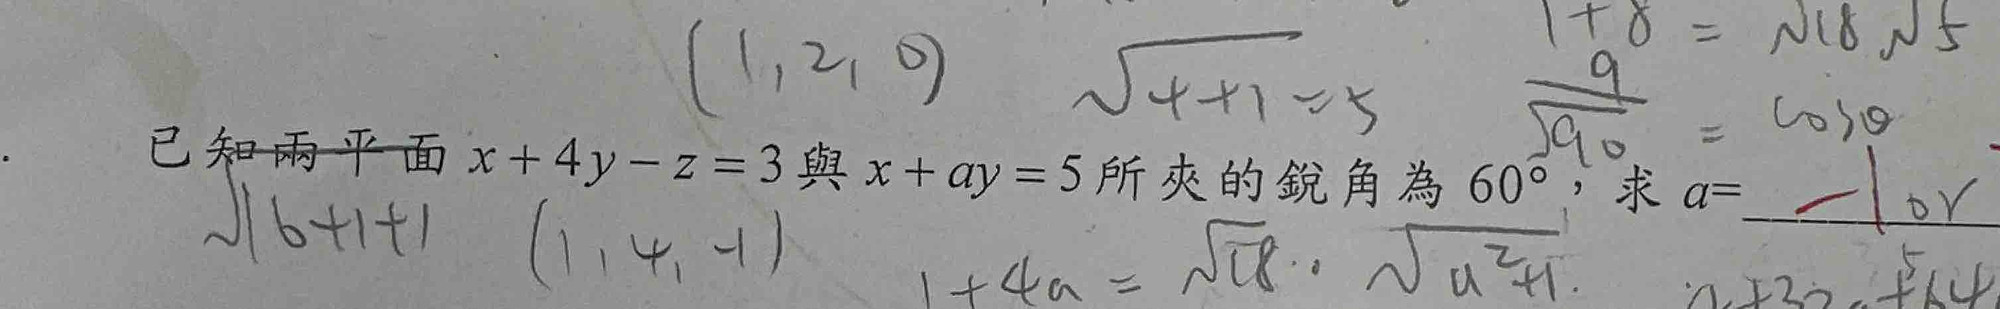 1+8 = √18 √5
(1, 2, 0) √4+1 = 5 9/√90 = cosθ
已知兩平面 x+4y−z=3與 x+ay=5所夾的銳角為 60°，求 a= −1 or
√16+1+1 (1, 4, -1) 1+4a = √18 · √a²+1